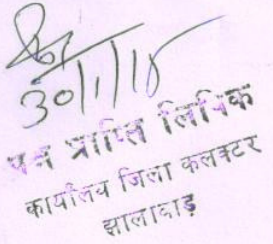 30/1/18
पत्र प्राप्ति लिपिक
कार्यालय जिला कलक्टर
झालावाड़